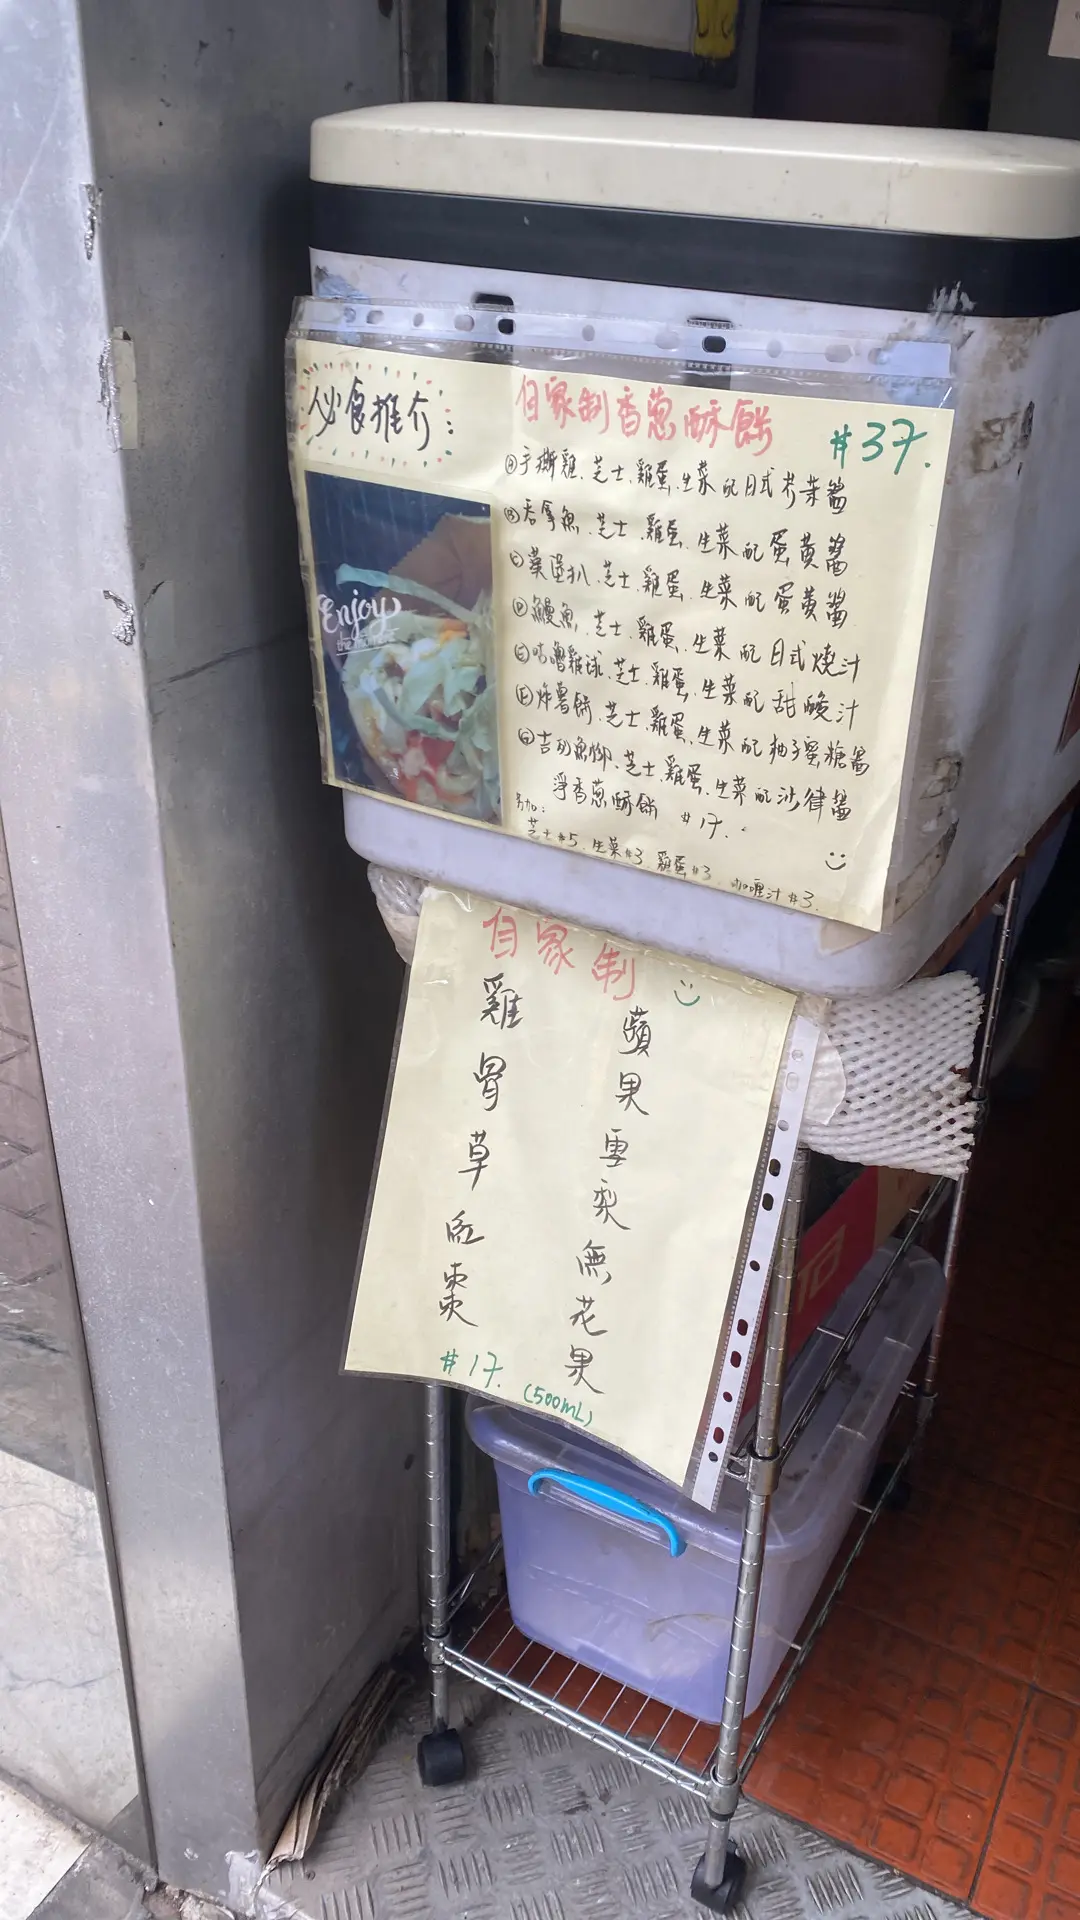 必食推介
自家制香葱酥餅 #37.
Ⓐ手撕雞、芝士、雞蛋、生菜配日式芥茉醬
Ⓑ吞拿魚、芝士、雞蛋、生菜配蛋黃醬
Ⓒ漢堡扒、芝士、雞蛋、生菜配蛋黃醬
Ⓓ鰻魚、芝士、雞蛋、生菜配日式燒汁
Ⓔ咕嚕雞球、芝士、雞蛋、生菜配甜酸汁
Ⓕ炸薯餅、芝士、雞蛋、生菜配柚子蜜糖醬
Ⓖ吉列魚柳、芝士、雞蛋、生菜配沙律醬
淨香葱酥餅 #17.
另加:
芝士#5、生菜#3、雞蛋#3、咖喱汁#3.
Enjoy
自家制
雞骨草紅棗
蘋果雪梨無花果
#17. (500mL)